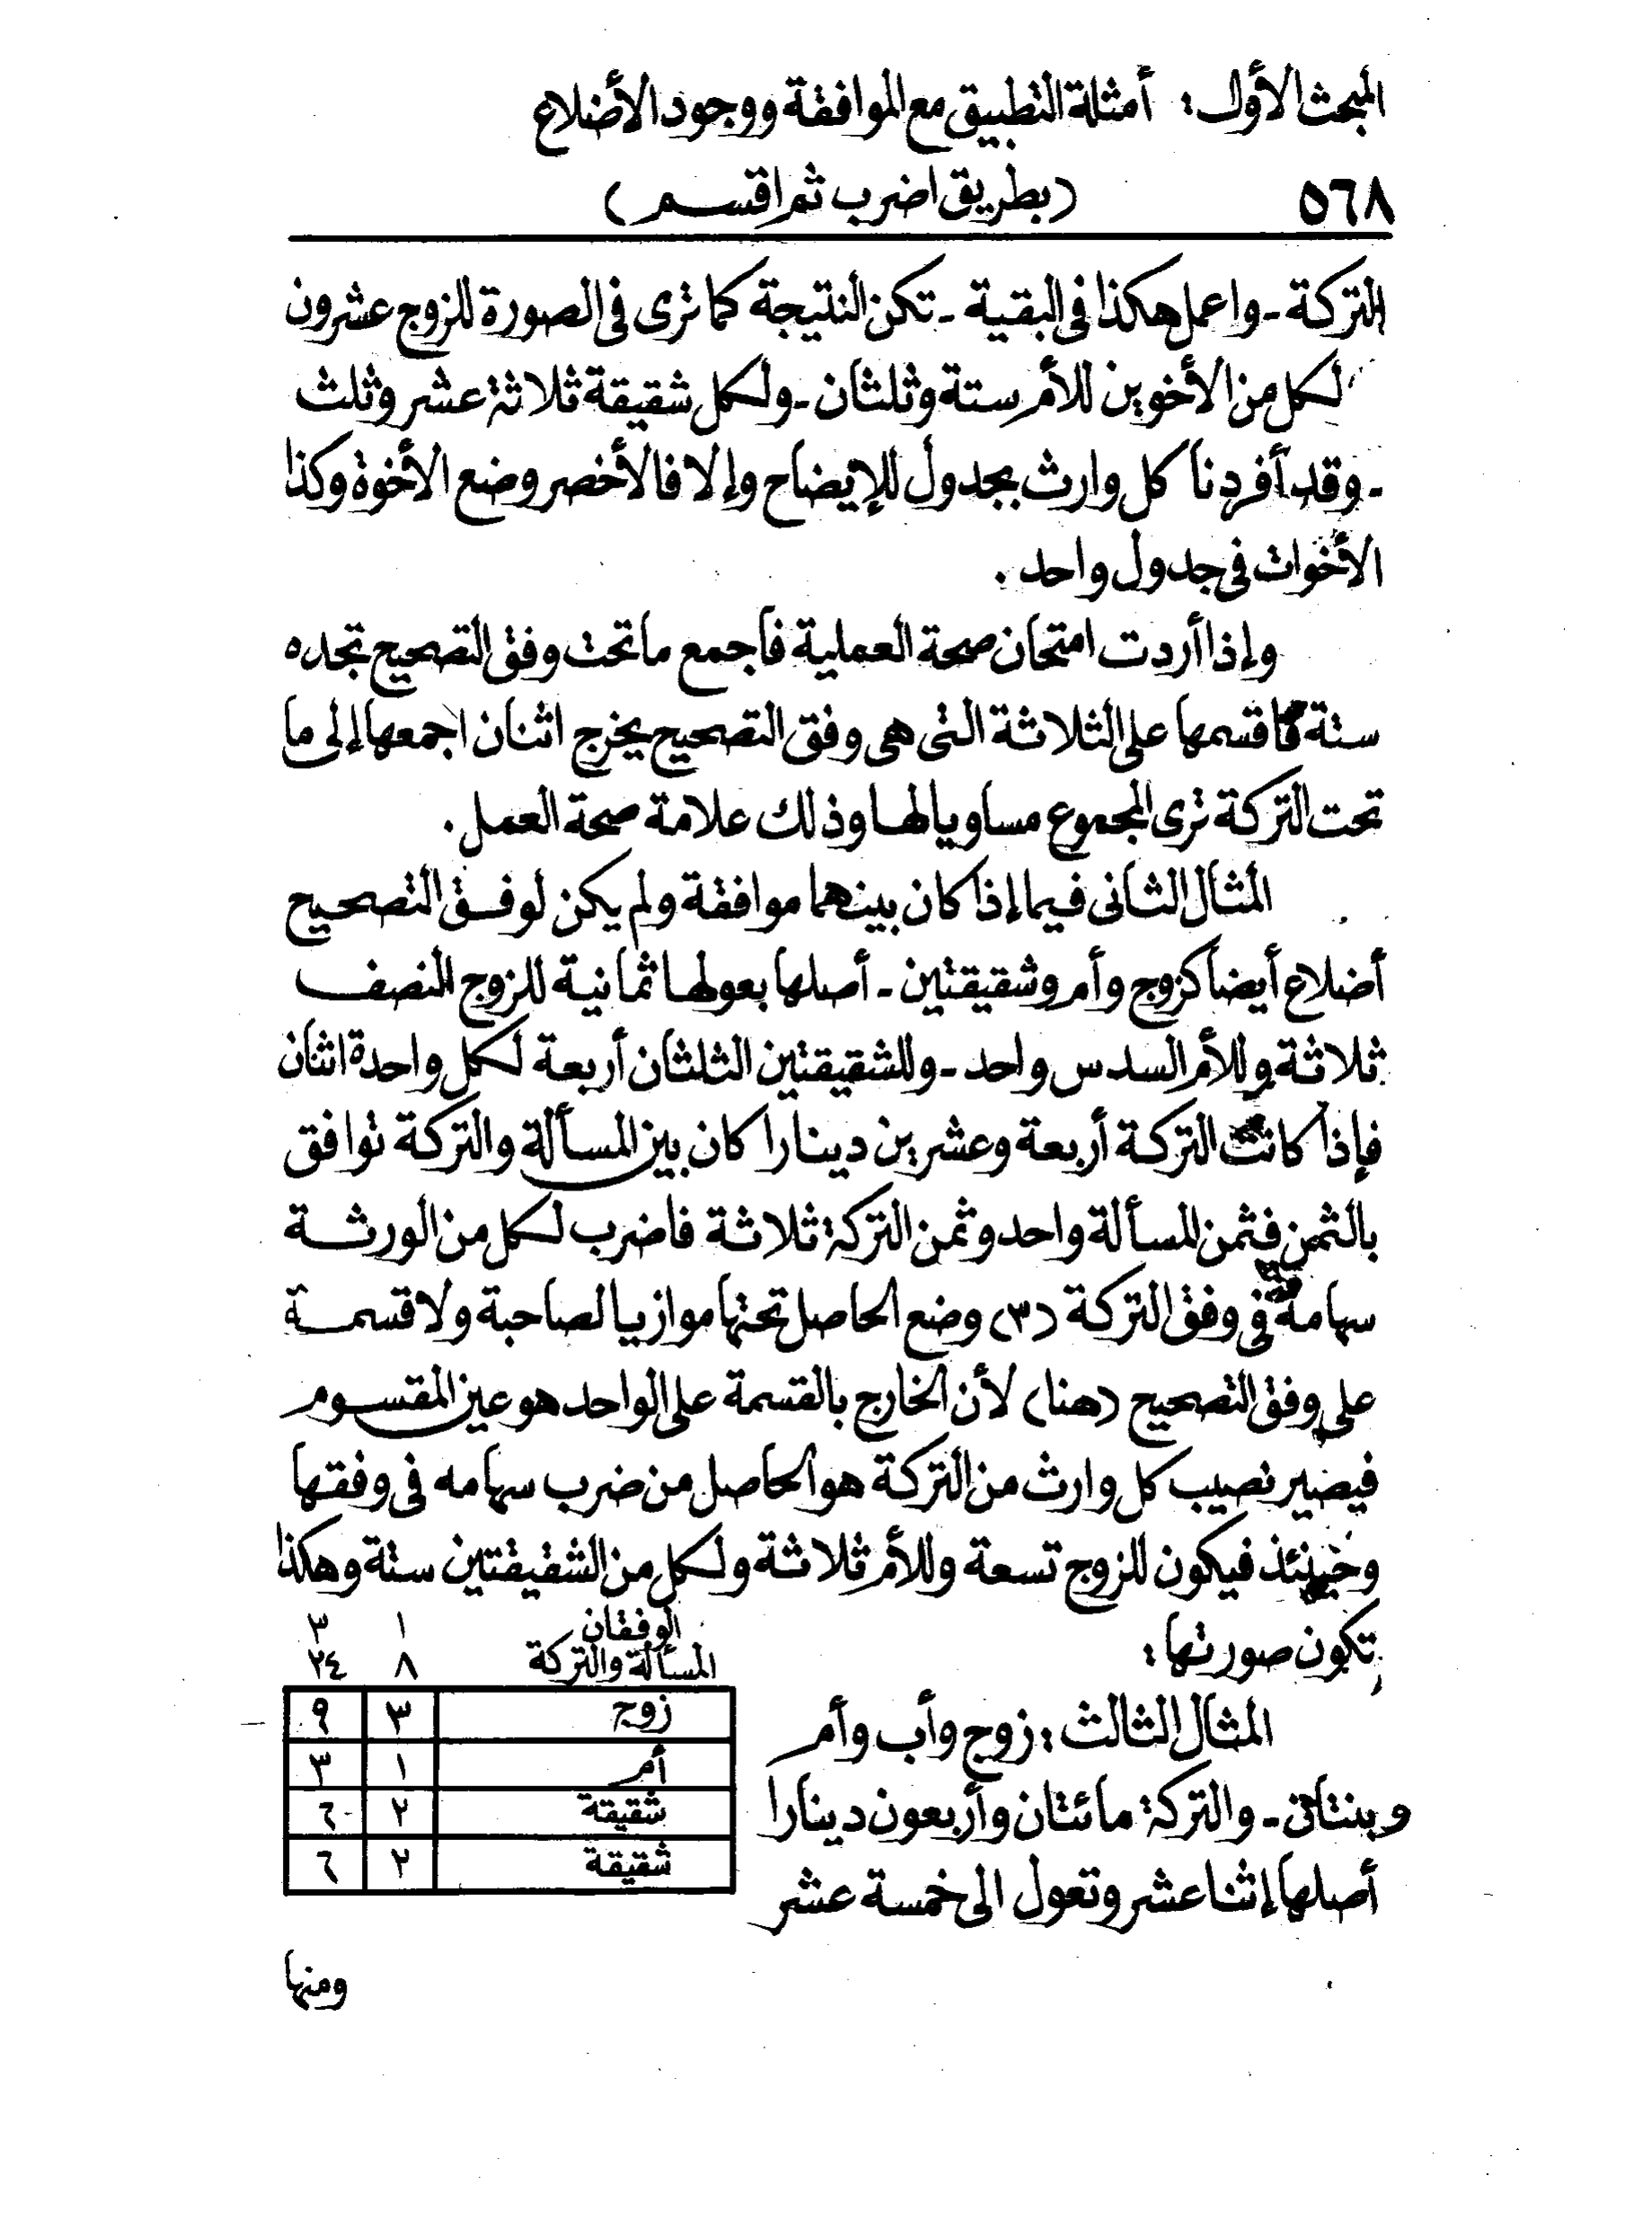 المبحث الأول: أمثلة التطبيق مع الموافقة ووجود الأضلاع
٥٦٨ (بطريق اضرب ثم اقسم)
التركة ـ واعمل هكذا فى البقية ـ تكن النتيجة كما ترى فى الصورة للزوج عشرون
لكل من الأخوين للأم ستة وثلثان ـ ولكل شقيقة ثلاثة عشر وثلث
ـ وقد أفردنا كل وارث بجدول للإيضاح وإلا فالأخصر وضع الأخوة وكذا
الأخوات فى جدول واحد .
وإذا أردت امتحان صحة العملية فاجمع ما تحت وفق التصحيح تجده
ستة فاقسمها على الثلاثة التى هى وفق التصحيح يخرج اثنان اجمعها إلى ما
تحت التركة ترى المجموع مساويا لها وذلك علامة صحة العمل .
المثال الثانى فيما إذا كان بينهما موافقة ولم يكن لوفق التصحيح
أضلاع أيضاً كزوج وأم وشقيقتين ـ أصلها بعولها ثمانية للزوج النصف
ثلاثة وللأم السدس واحد ـ وللشقيقتين الثلثان أربعة لكل واحدة اثنان
فإذا كانت التركة أربعة وعشرين دينارا كان بين المسألة والتركة توافق
بالثمن فثمن المسألة واحد وثمن التركة ثلاثة فاضرب لكل من الورثة
سهامه فى وفق التركة (٣) وضع الحاصل تحتها موازيا لصاحبة ولا قسمة
على وفق التصحيح (هنا) لأن الخارج بالقسمة على الواحد هو عين المقسوم
فيصير نصيب كل وارث من التركة هو الحاصل من ضرب سهامه فى وفقها
وحينئذ فيكون للزوج تسعة وللأم ثلاثة ولكل من الشقيقتين ستة وهكذا
تكون صورتها :
الوفقان ١ ٣
المسألة والتركة ٨ ٢٤
زوج ٣ ٩
أم ١ ٣
شقيقة ٢ ٦
شقيقة ٢ ٦
المثال الثالث : زوج وأب وأم
وبنتان ـ والتركة مائتان وأربعون دينارا
أصلها إثنا عشر وتعول الى خمسة عشر
ومنها